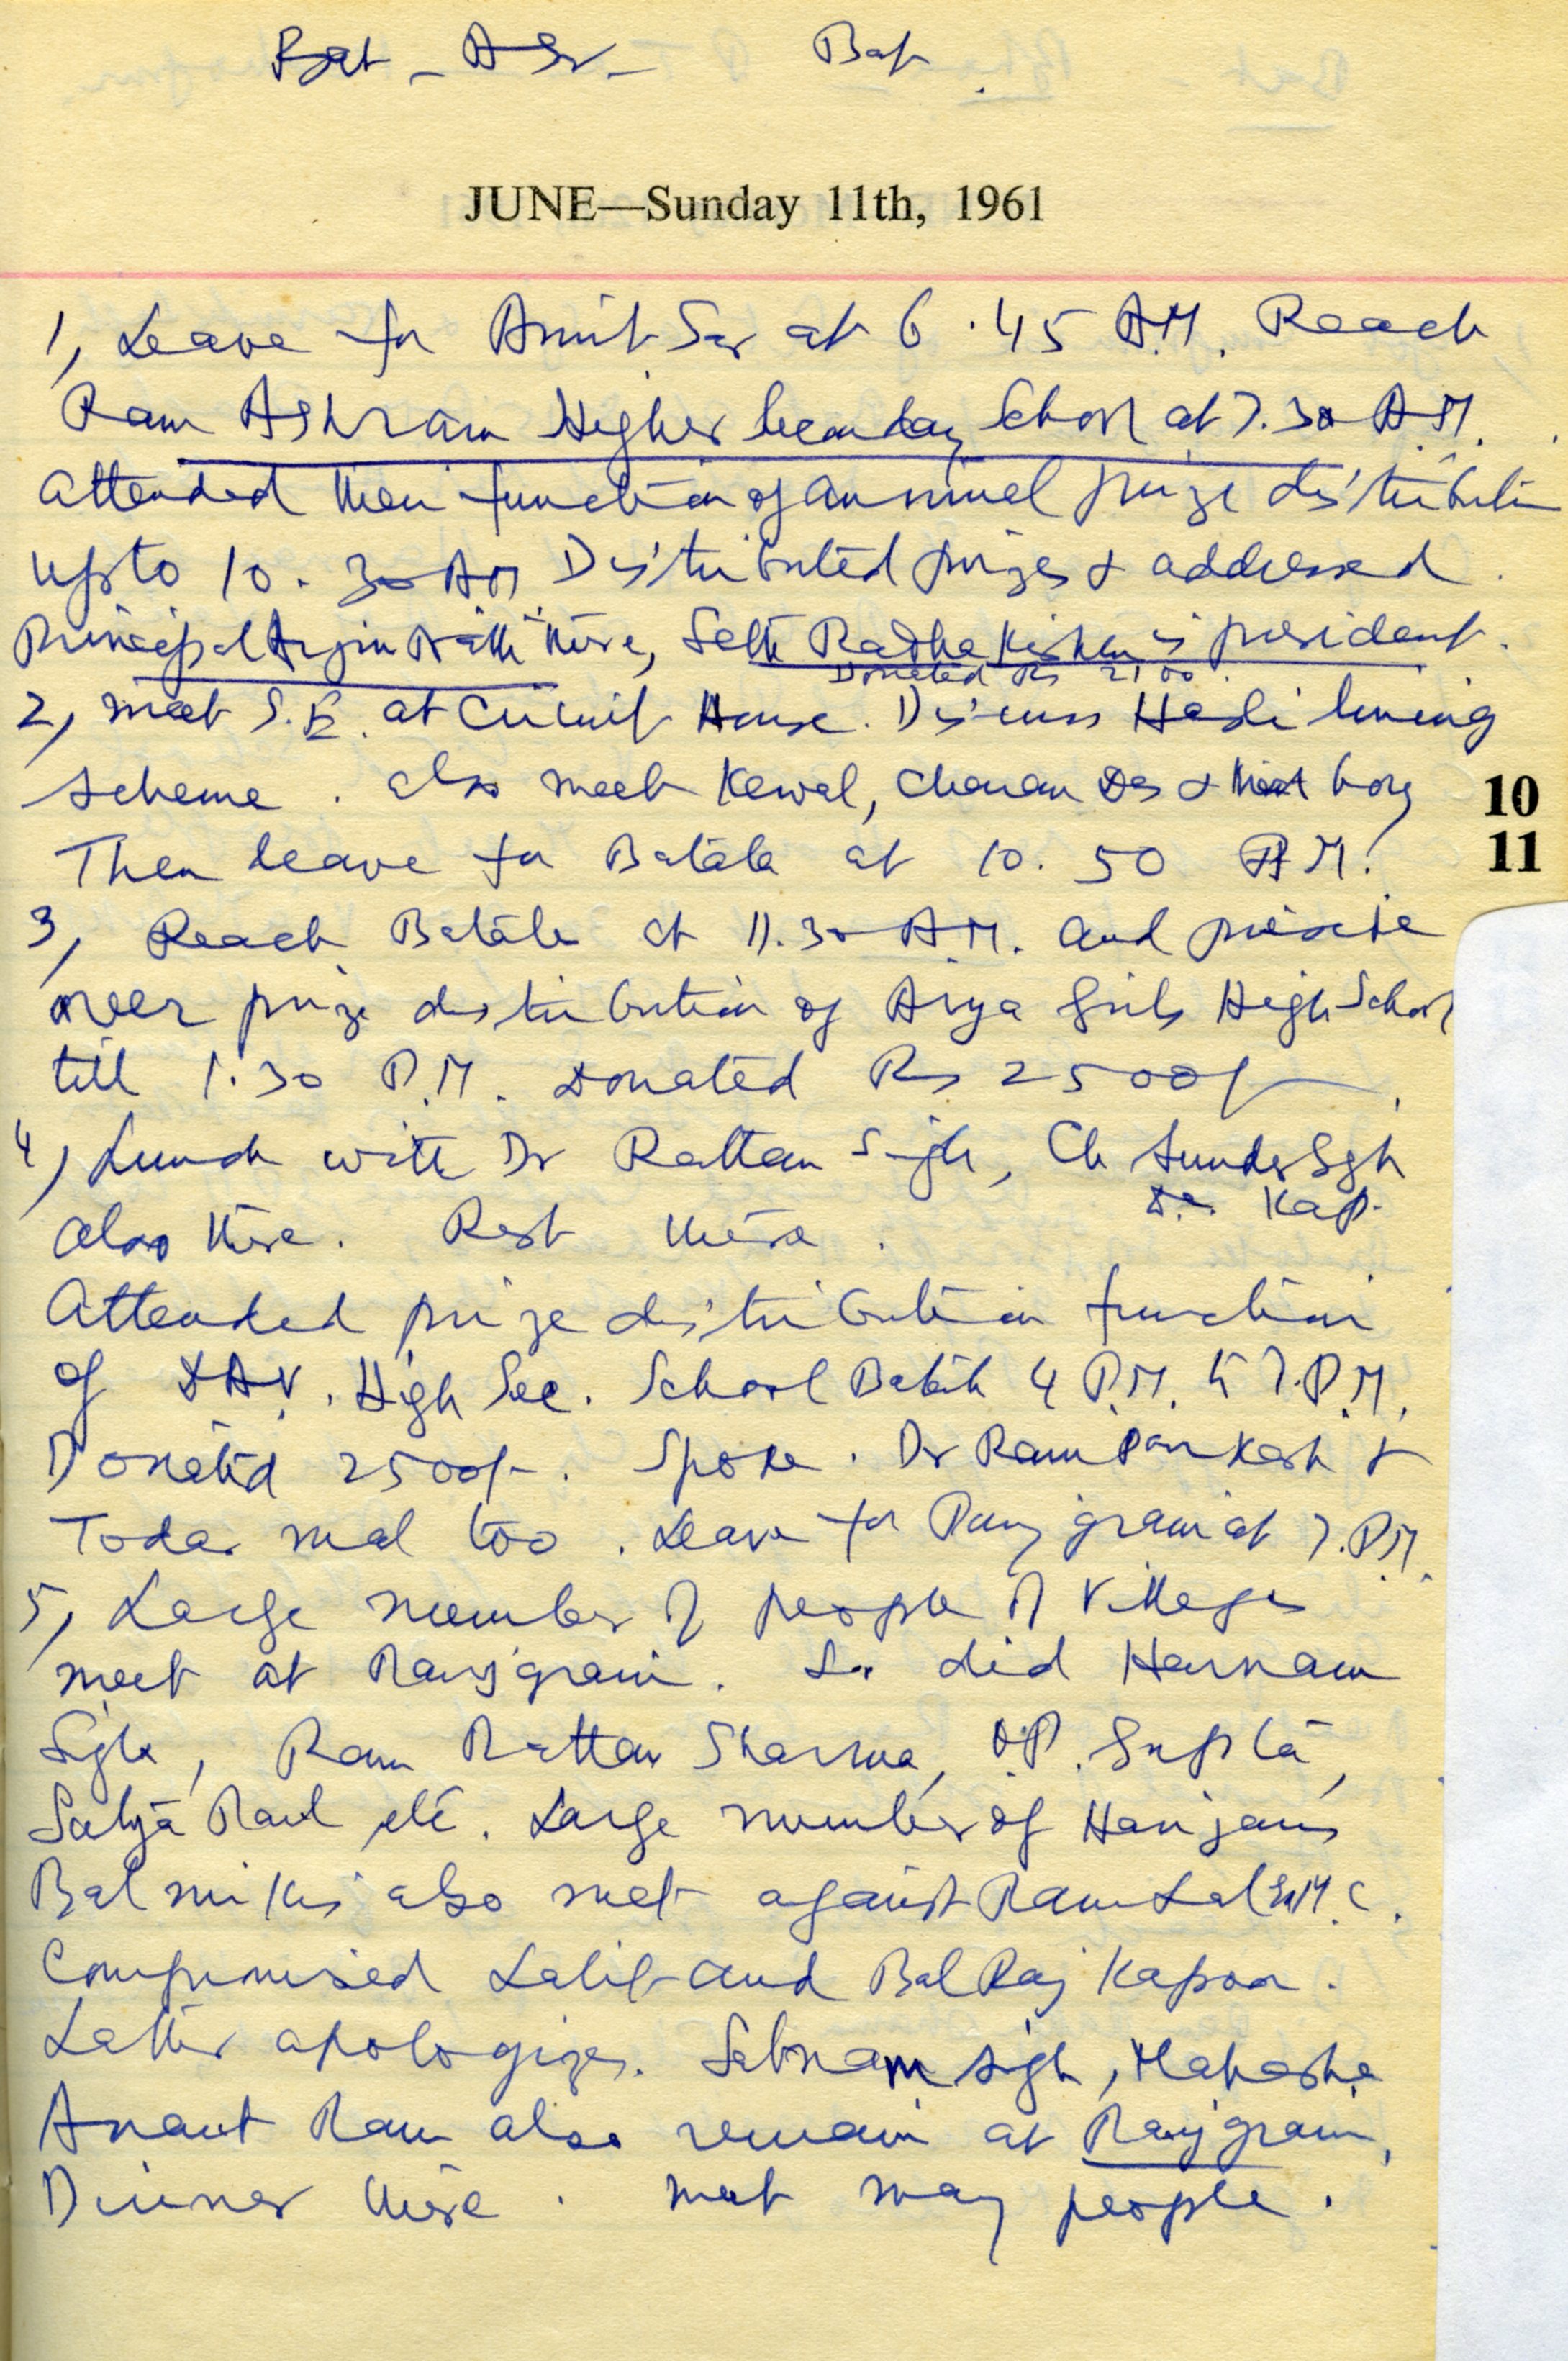 Bat - ASr - Bat
JUNE—Sunday 11th, 1961
1, Leave for Amrit Sar at 6.45 A.M. Reach
Ram Ashram Higher Secondary School at 7.30 A.M.
attended their function of annual prize distribution
upto 10.30 AM Distributed prizes & addressed.
Principal Arjin Nath there, Seth Radha Kishen is president.
Donated Rs 2100
2, meet S.E. at Circuit House. Discuss Hasli lining
scheme. also meet Kewal, Charan Das & boy
Then leave for Batala at 10.50 A.M.
10
11
3, Reach Batala at 11.30 A.M. and preside
over prize distribution of Arya Girls High School
till 1.30 P.M. Donated Rs 2500/-
4, Lunch with Dr Rattan Singh, Ch Sunder Sgh
Kap.
also there. Rest there.
Attended prize distribution function
of DAV. High Sec. School Batala 4 P.M. to 7.P.M.
Donated 2500/-. Spoke. Dr Ram Parkash &
Todar mal too. Leave for Panjgrain at 7.P.M.
5, Large number of people of Villages
meet at Panjgrain. So did Harnam
Sigh, Ram Rattan Sharma, O.P. Gupta,
Satya Paul etc. Large number of Harijans
Balmikis also met against Ram Lal M.C.
Compromised Lalit and Bal Raj Kapoor.
Latter apologizes. Satnam sigh, Mahasha
Anant Ram also remain at Panjgrain,
Dinner there. met many people.